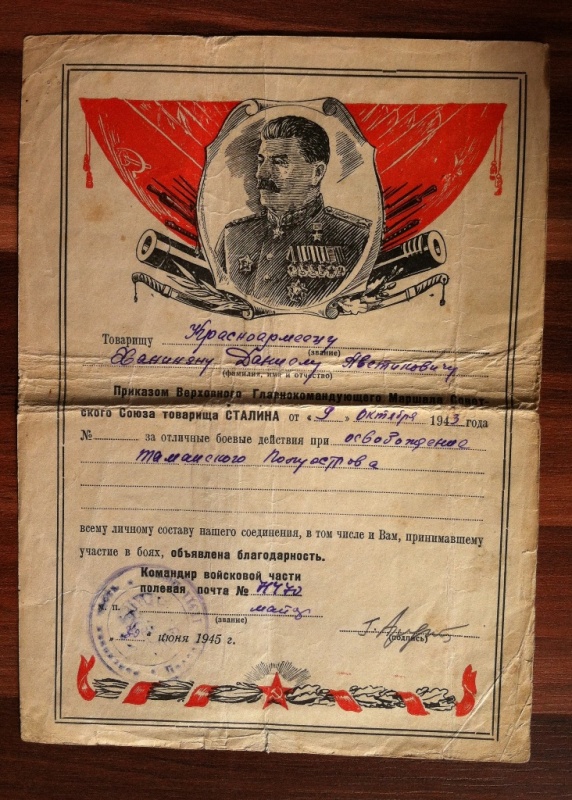 Товарищу Красноармейцу
(звание)
Даниелу Аветиковичу
(фамилия, имя и отчество)
Приказом Верховного Главнокомандующего Маршала Совет-
ского Союза товарища СТАЛИНА от „9" октября 1943 года
№ за отличные боевые действия при освобождение
Таманского Полуострова
всему личному составу нашего соединения, в том числе и Вам, принимавшему
участие в боях, объявлена благодарность.
Командир войсковой части
полевая почта №
м. п. майор
(звание)
(подпись)
" июня 1945 г.